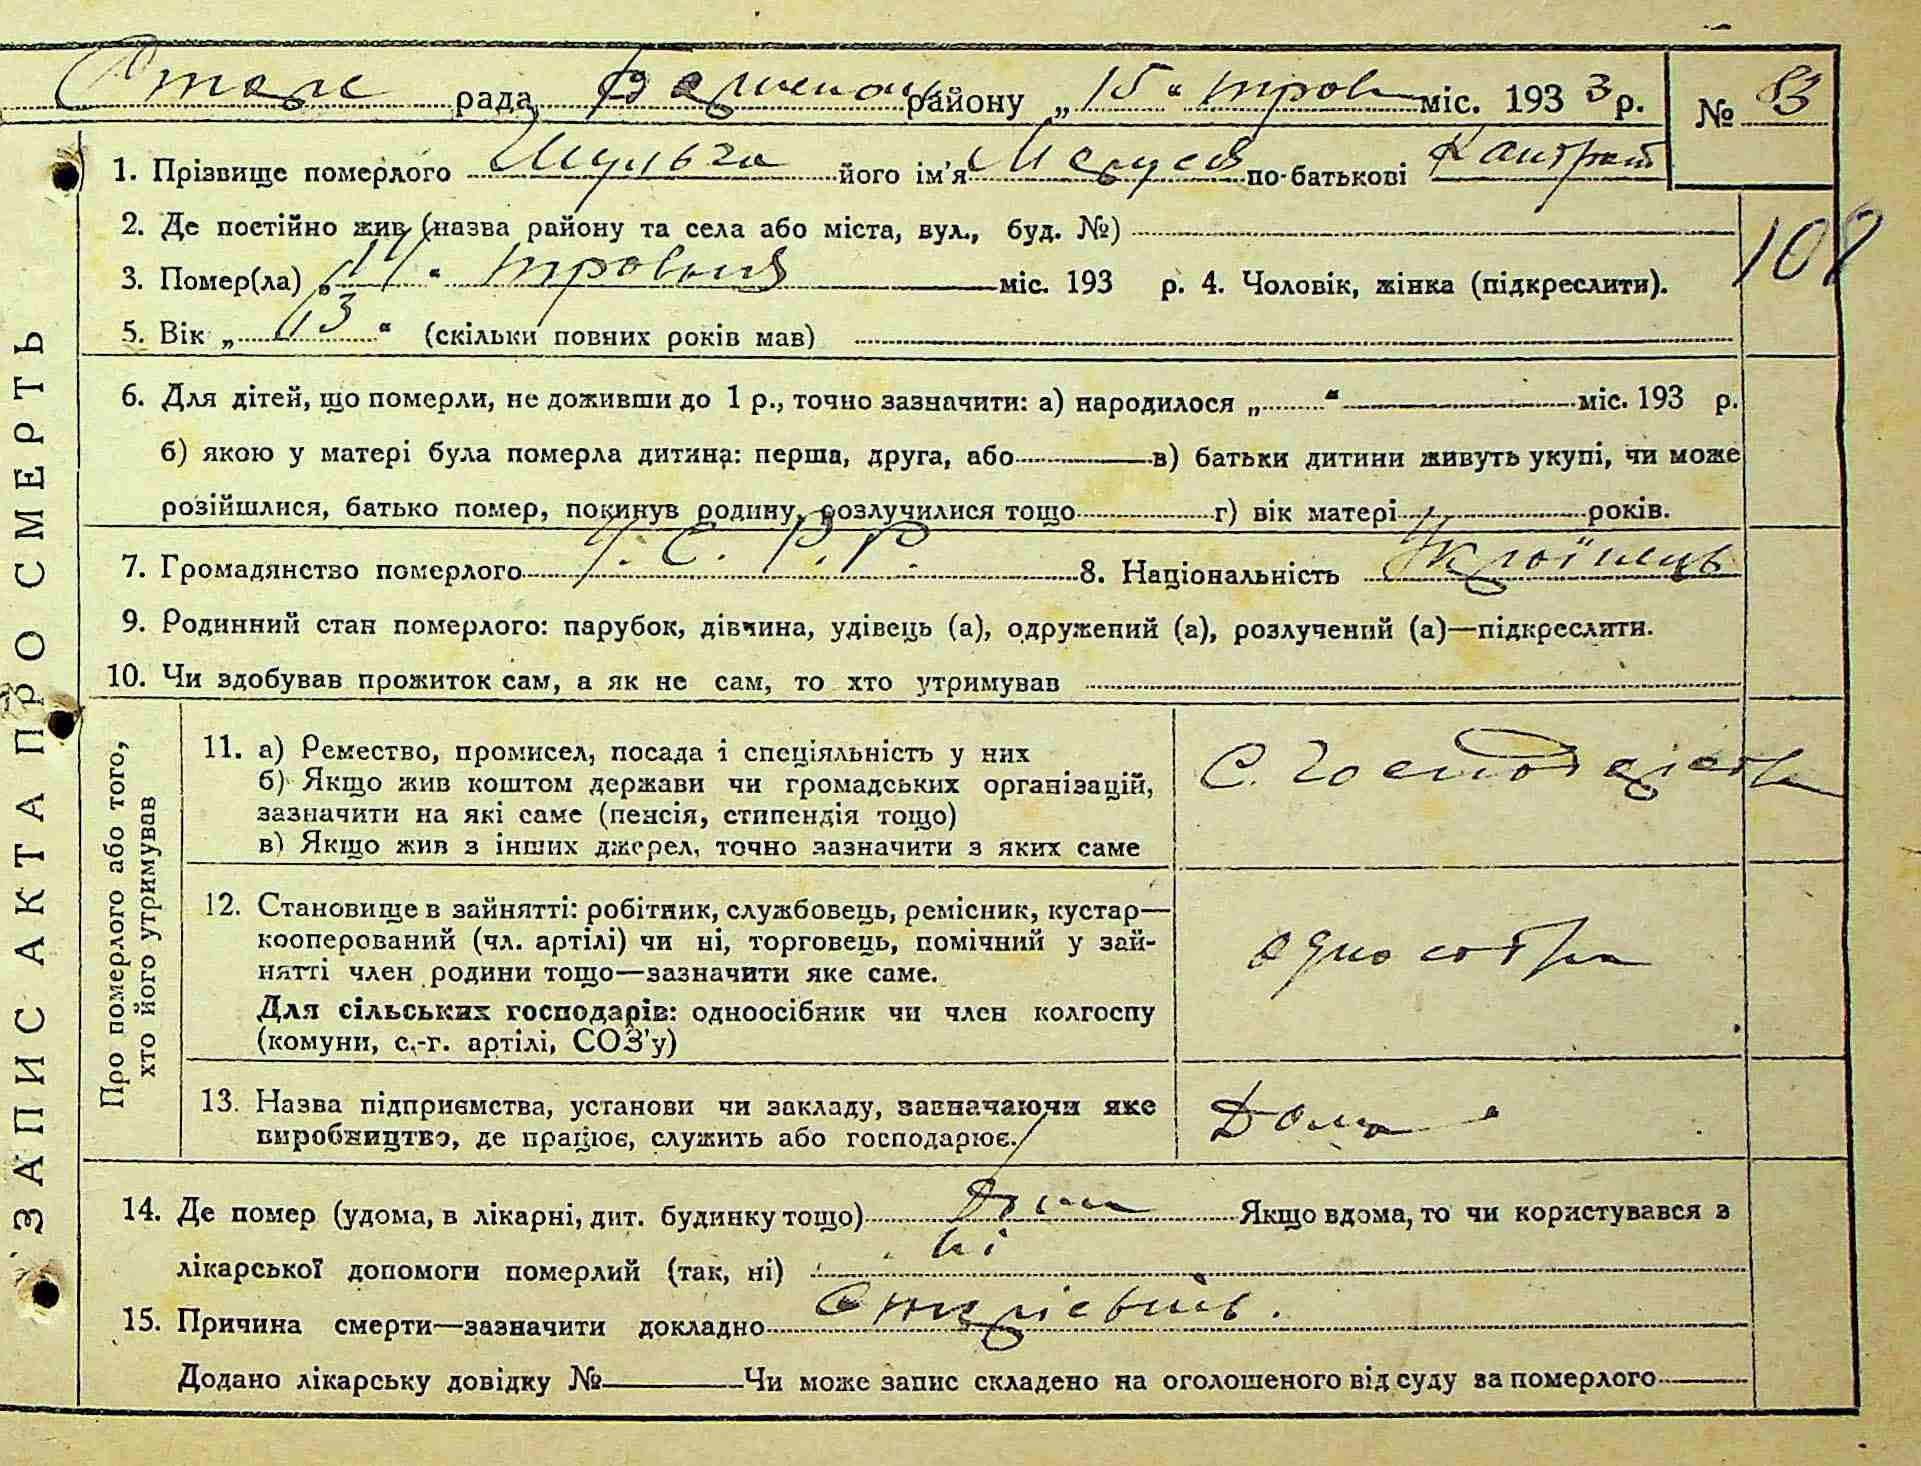 рада району „ 15 " трав міс. 193 3 р. № 83
1. Прізвище померлого Шульга його ім'я Маруся по-батькові Кантрат
2. Де постійно жив (назва району та села або міста, вул., буд. №)
108
3. Помер(ла) „ " травня міс. 193 р. 4. Чоловік, жінка (підкреслити).
5. Вік „ 13 " (скільки повних років мав)
6. Для дітей, що померли, не доживши до 1 р., точно зазначити: а) народилося „ " міс. 193 р.
б) якою у матері була померла дитина: перша, друга, або в) батьки дитини живуть укупі, чи може
розійшлися, батько помер, покинув родину, розлучилися тощо г) вік матері років.
7. Громадянство померлого У. С. Р. Р. 8. Національність Українець
9. Родинний стан померлого: парубок, дівчина, удівець (а), одружений (а), розлучений (а)—підкреслити.
10. Чи здобував прожиток сам, а як не сам, то хто утримував
ЗАПИС АКТА ПРО СМЕРТЬ
Про померлого або того,
хто його утримував
11. а) Ремество, промисел, посада і спеціяльність у них
б) Якщо жив коштом держави чи громадських організацій,
зазначити на які саме (пенсія, стипендія тощо)
в) Якщо жив з інших джерел, точно зазначити з яких саме
С. Господарств
12. Становище в зайнятті: робітник, службовець, ремісник, кустар—
кооперований (чл. артілі) чи ні, торговець, помічний у зай-
нятті член родини тощо—зазначити яке саме.
Для сільських господарів: одноосібник чи член колгоспу
(комуни, с.-г. артілі, СОЗ'у)
13. Назва підприємства, установи чи закладу, зазначаючи яке
виробництво, де працює, служить або господарює.
Дома
14. Де помер (удома, в лікарні, дит. будинку тощо) Дома Якщо вдома, то чи користувався з
лікарської допомоги померлий (так, ні) ні
15. Причина смерти—зазначити докладно
Додано лікарську довідку № Чи може запис складено на оголошеного від суду за померлого